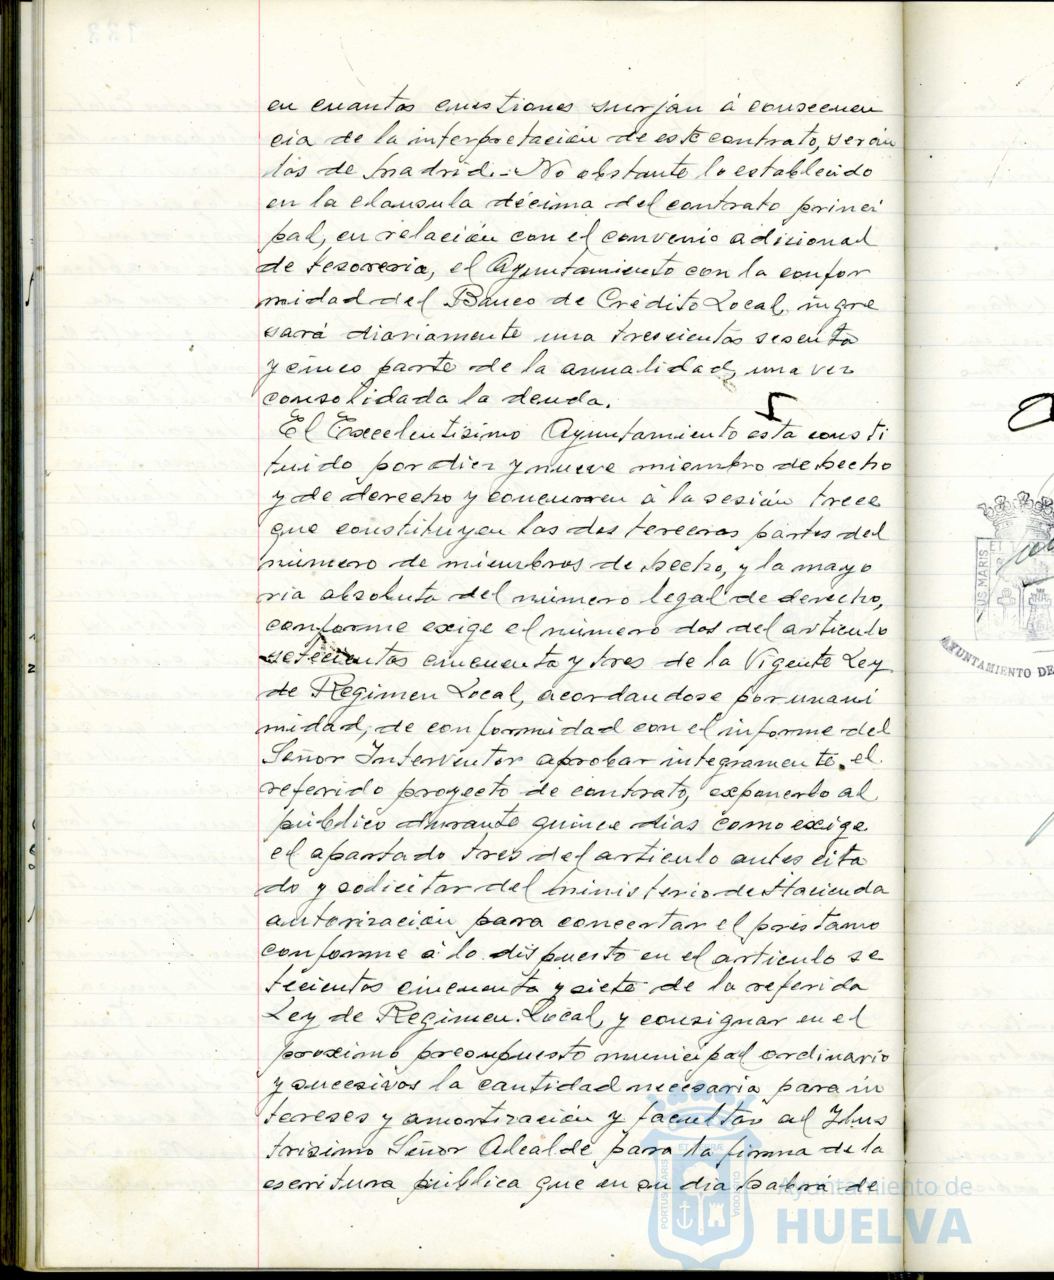 en cuantas cuestiones surjan á consecuen
cia de la interpretación de este contrato, serán
los de Madrid.- No obstante lo establecido
en la clausula décima del contrato princi
pal, en relación con el convenio adicional
de tesoreria, el Ayuntamiento con la confor
midad del Banco de Crédito Local, ingre
sará diariamente una trescientas sesenta
y cinco parte de la anualidad, una vez
consolidada la deuda.
El Excelentisimo Ayuntamiento esta consti
tuido por diez y nueve miembro de hecho
y de derecho y concurren á la sesión trece
que constituyen las dos terceras partes del
número de miembros de hecho, y la mayo
ria absoluta del número legal de derecho,
conforme exige el número dos del articulo
setecientos cincuenta y tres de la Vigente Ley
de Regimen Local, acordandose por unani
midad, de conformidad con el informe del
Señor Interventor aprobar integramente el
referido proyecto de contrato, exponerlo al
público durante quince dias como exige
el apartado tres del articulo antes cita
do y solicitar del ministerio de Hacienda
autorización para concertar el préstamo
conforme á lo dispuesto en el articulo se
tecientos cincuenta y siete de la referida
Ley de Regimen Local, y consignar en el
proximo presupuesto municipal ordinario
y sucesivos la cantidad necesaria para in
tereses y amortización y facultar al Ilus
trisimo Señor Alcalde para la firma de la
escritura pública que en su dia habrá de
AYUNTAMIENTO DE
Ayuntamiento de
HUELVA